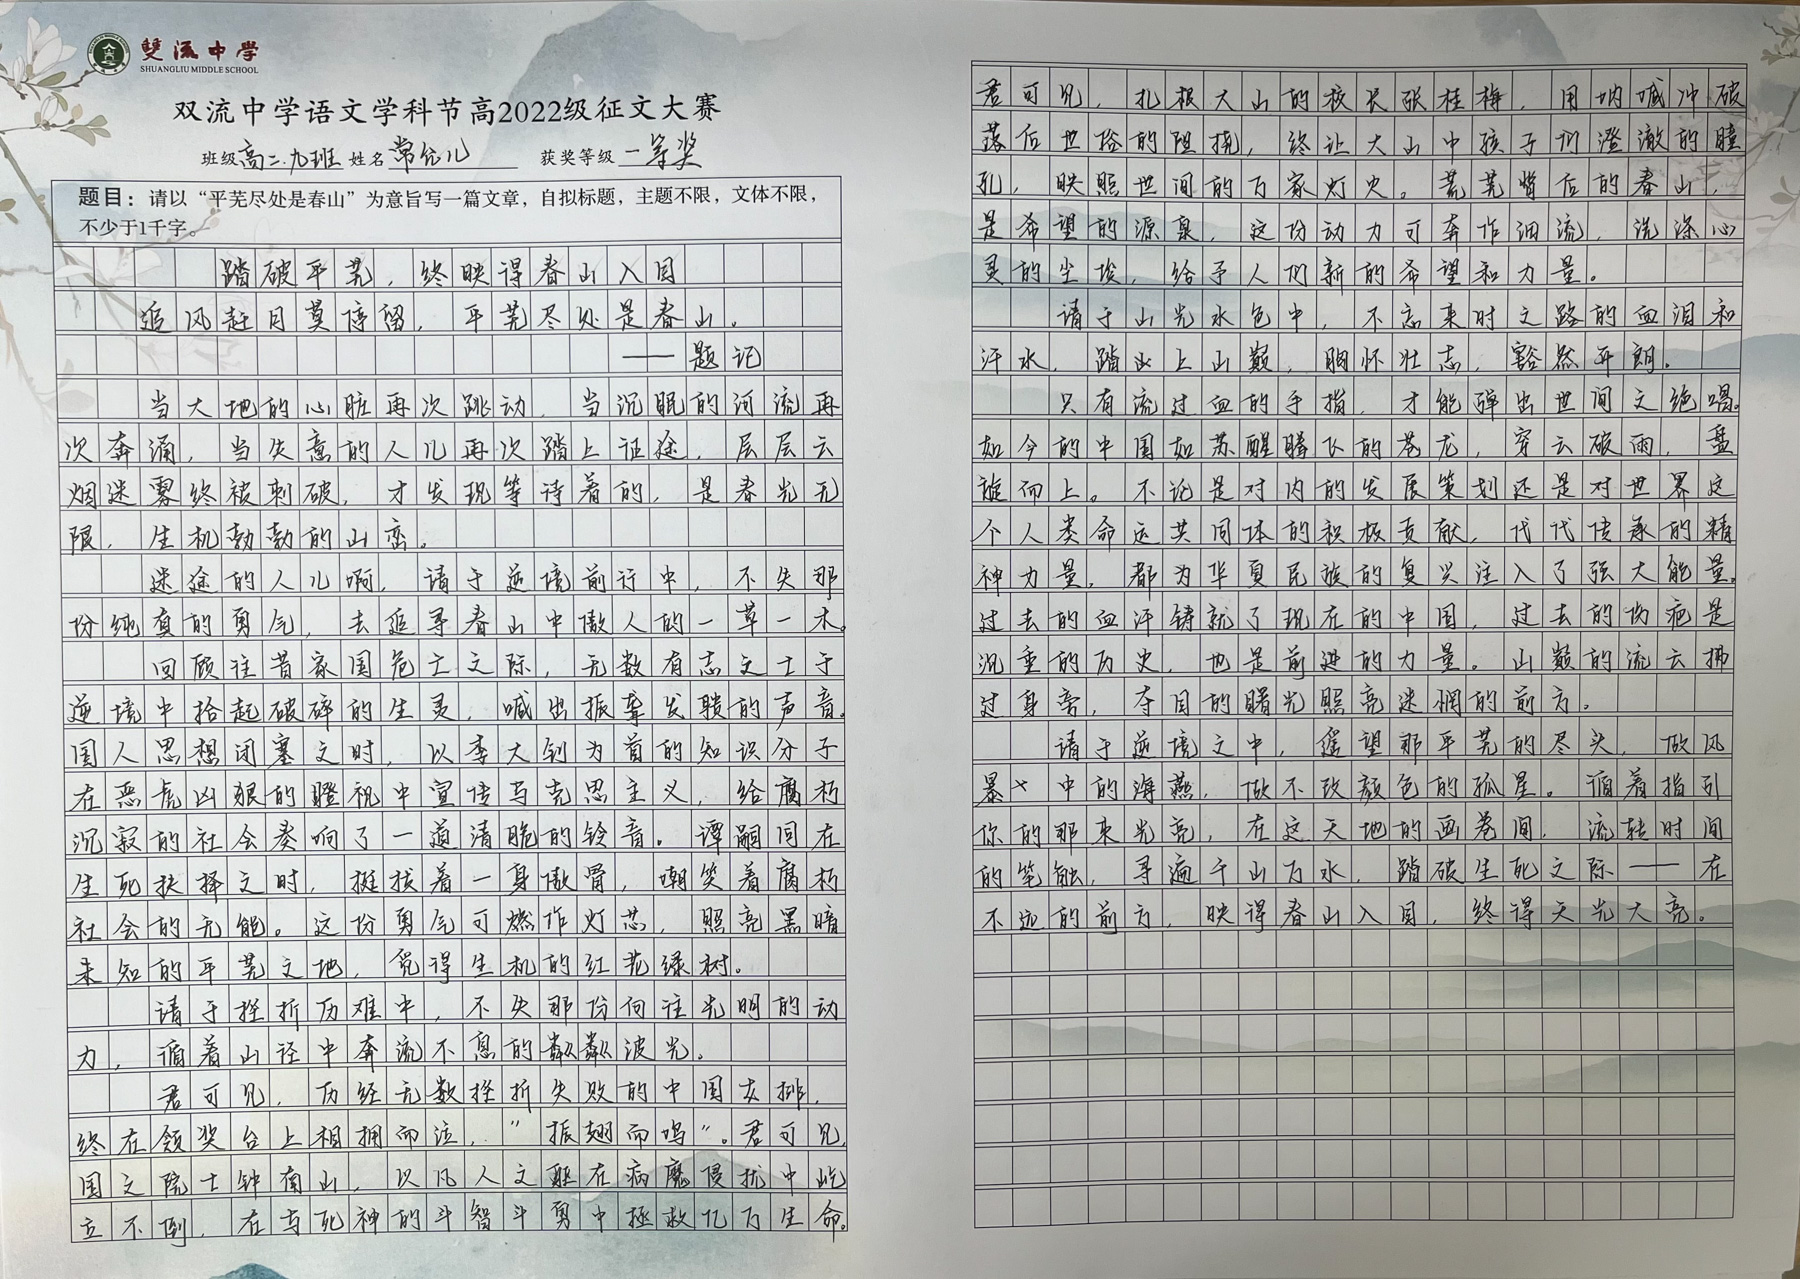 雙流中學
SHUANGLIU MIDDLE SCHOOL
双流中学语文学科节高2022级征文大赛
班级高二.九班 姓名常允儿 获奖等级一等奖
题目：请以“平芜尽处是春山”为意旨写一篇文章，自拟标题，主题不限，文体不限，
不少于1千字。
踏破平芜，终映得春山入目
追风赶月莫停留，平芜尽处是春山。
——题记
当大地的心脏再次跳动，当沉眠的河流再
次奔涌，当失意的人儿再次踏上征途，层层云
烟迷雾终被刺破，才发现等待着的，是春光无
限，生机勃勃的山峦。
迷途的人儿啊，请于逆境前行中，不失那
份纯真的勇气，去追寻春山中傲人的一草一木。
回顾往昔家国危亡之际，无数有志之士于
逆境中拾起破碎的生灵，喊出振聋发聩的声音。
国人思想闭塞之时，以李大钊为首的知识分子
在恶虎凶狠的瞪视中宣传马克思主义，给腐朽
沉寂的社会奏响了一道清脆的铃音。谭嗣同在
生死抉择之时，挺拔着一身傲骨，嘲笑着腐朽
社会的无能。这份勇气可燃作灯芯，照亮黑暗
未知的平芜之地，觅得生机的红花绿树。
请于挫折历难中，不失那份向往光明的动
力，循着山径中奔流不息的粼粼波光。
君可见，历经无数挫折失败的中国女排，
终在领奖台上相拥而泣，“振翅而鸣”。君可见，
国之院士钟南山，以凡人之躯在病魔侵扰中屹
立不倒，在与死神的斗智斗勇中拯救亿万生命。
君可见，扎根大山的校长张桂梅，用呐喊冲破
落后世俗的阻挠，终让大山中孩子们澄澈的瞳
孔，映照世间的万家灯火。荒芜背后的春山，
是希望的源泉，这份动力可奔作洄流，洗涤心
灵的尘埃，给予人们新的希望和力量。
请于山光水色中，不忘来时之路的血泪和
汗水，踏出上山巅，胸怀壮志，豁然开朗。
只有流过血的手指，才能弹出世间之绝唱。
如今的中国如苏醒腾飞的苍龙，穿云破雨，盘
旋而上。不论是对内的发展策划还是对世界这
个人类命运共同体的积极贡献，代代传承的精
神力量，都为华夏民族的复兴注入了强大能量。
过去的血汗铸就了现在的中国，过去的伤疤是
沉重的历史，也是前进的力量。山巅的流云拂
过身旁，夺目的曙光照亮迷惘的前方。
请于逆境之中，遥望那平芜的尽头，做风
暴之中的海燕，做不改颜色的孤星。循着指引
你的那束光亮，在这天地的画卷间，流转时间
的笔触，寻遍千山万水，踏破生死之际——在
不远的前方，映得春山入目，终得天光大亮。